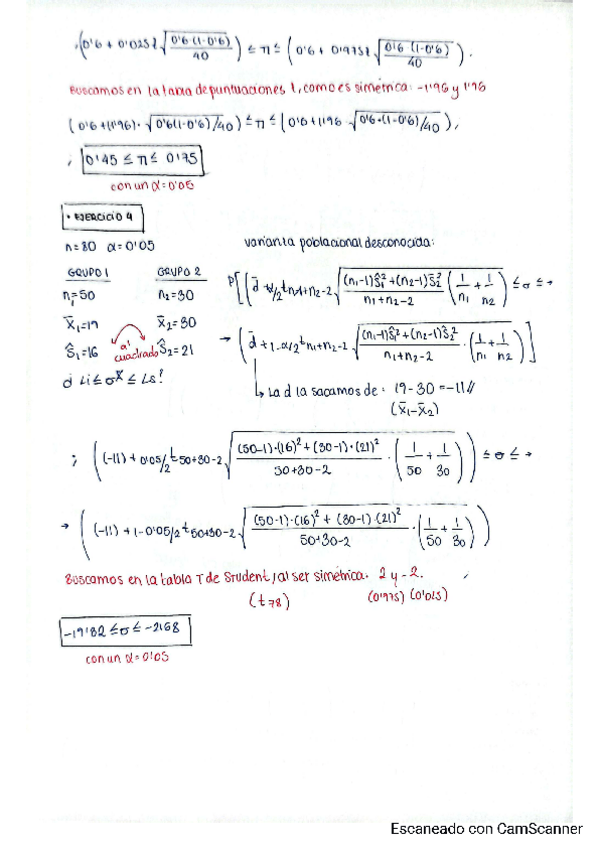 (0'6 + 0'025z √(0'6 (1-0'6)/40)) ≤ π ≤ (0'6 + 0'975z √(0'6 (1-0'6)/40)).
Buscamos en la tabla de puntuaciones z, como es simétrica: -1'96 y 1'96
(0'6 + (1'96) · √(0'6(1-0'6)/40)) ≤ π ≤ (0'6 + 1'96 √(0'6·(1-0'6)/40)),
; 0'45 ≤ π ≤ 0'75
con un α=0'05
· EJERCICIO 4
n=80 α=0'05 varianza poblacional desconocida:
GRUPO 1 GRUPO 2
n₁=50 n₂=30
X̄₁=19 X̄₂=30
Ŝ₁=16 al cuadrado Ŝ₂=21
¿ Li ≤ σ ≤ Ls?
P[(d̄ + α/2 t n₁+n₂-2 √((n₁-1)Ŝ₁²+(n₂-1)Ŝ₂²/n₁+n₂-2 (1/n₁ + 1/n₂)) ≤ σ ≤ →
→ (d̄ + 1-α/2 t n₁+n₂-2 √((n₁-1)Ŝ₁²+(n₂-1)Ŝ₂²/n₁+n₂-2 · (1/n₁ + 1/n₂))]
La d la sacamos de: 19-30 = -11//
(X̄₁-X̄₂)
; ((-11) + 0'05/2 t 50+30-2 √((50-1)·(16)²+(30-1)·(21)²/50+30-2 · (1/50 + 1/30))) ≤ σ ≤ →
→ ((-11) + 1-0'05/2 t 50+30-2 √((50-1)·(16)² + (30-1)·(21)²/50+30-2 · (1/50 + 1/30)))
Buscamos en la tabla T de Student, al ser simétrica: 2 y -2.
(t₇₈) (0'975) (0'025)
-19'32 ≤ σ ≤ -2'68
con un α=0'05
Escaneado con CamScanner